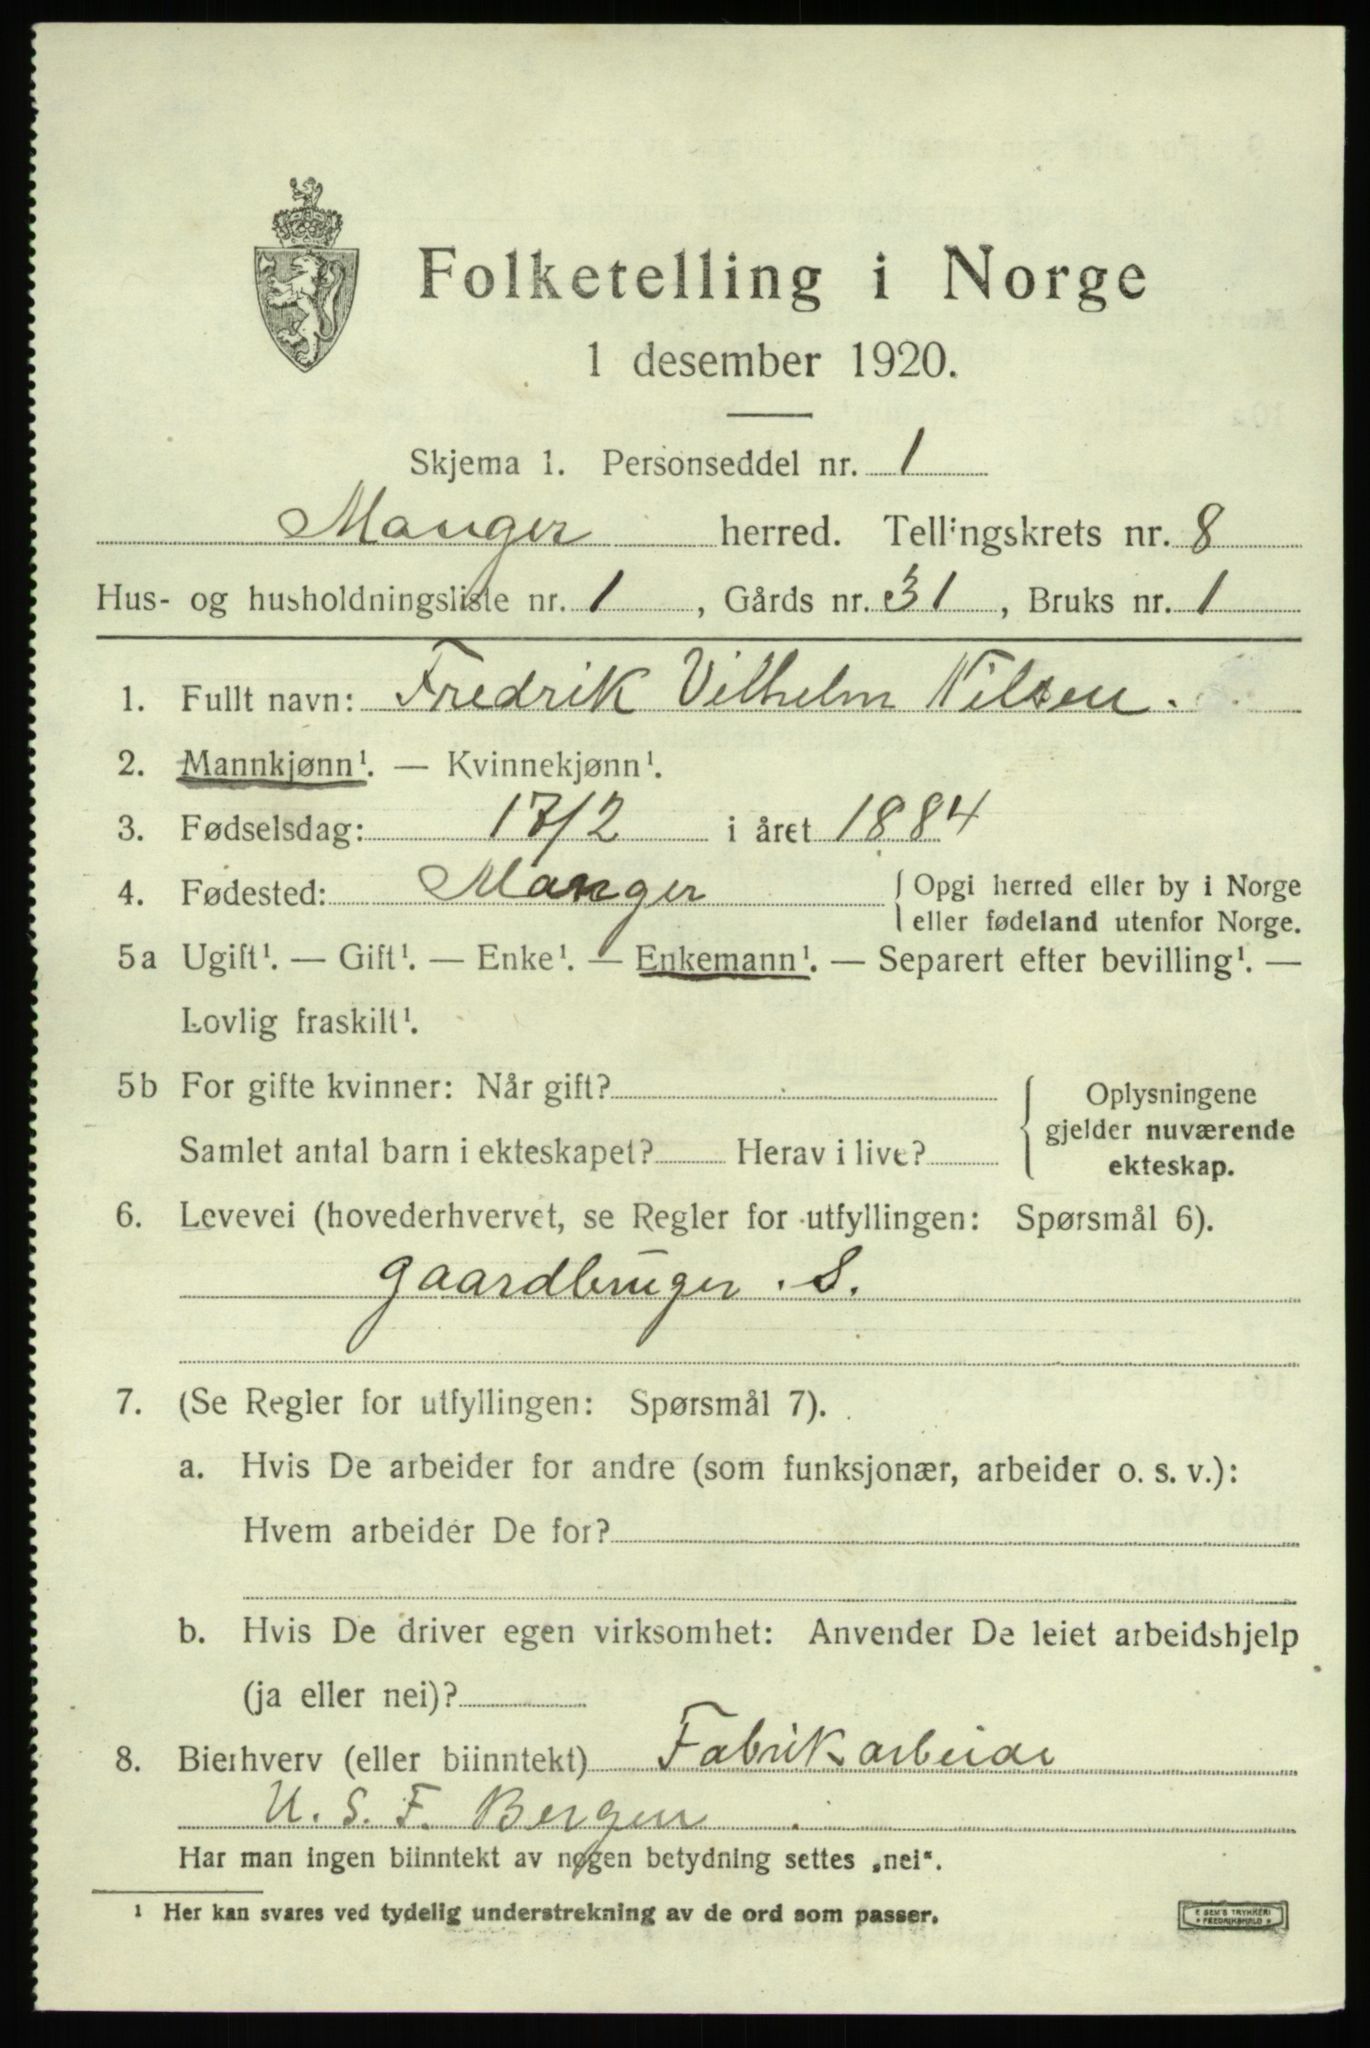 Folketelling i Norge
1 desember 1920.
Skjema 1. Personseddel nr. 1
Manger herred. Tellingskrets nr. 8
Hus- og husholdningsliste nr. 1, Gårds nr. 31, Bruks nr. 1
1. Fullt navn: Fredrik Vilhelm Nilsen.
2. Mannkjønn¹. — Kvinnekjønn¹.
3. Fødselsdag: 17/2 i året 1884
4. Fødested: Manger { Opgi herred eller by i Norge
eller fødeland utenfor Norge.
5a Ugift¹. — Gift¹. — Enke¹. — Enkemann¹. — Separert efter bevilling¹. —
Lovlig fraskilt¹.
5b For gifte kvinner: Når gift?
Samlet antal barn i ekteskapet? Herav i live?
{ Oplysningene
gjelder nuværende
ekteskap.
6. Levevei (hovederhvervet, se Regler for utfyllingen: Spørsmål 6).
gaardbruger. S.
7. (Se Regler for utfyllingen: Spørsmål 7).
a. Hvis De arbeider for andre (som funksjonær, arbeider o. s. v.):
Hvem arbeider De for?
b. Hvis De driver egen virksomhet: Anvender De leiet arbeidshjelp
(ja eller nei)?
8. Bierhverv (eller biinntekt) Fabrikarbeide
U. S. F. Bergen
Har man ingen biinntekt av nogen betydning settes „nei".
¹ Her kan svares ved tydelig understrekning av de ord som passer.
E SEM'S TRYKKERI
FREDRIKSHALD